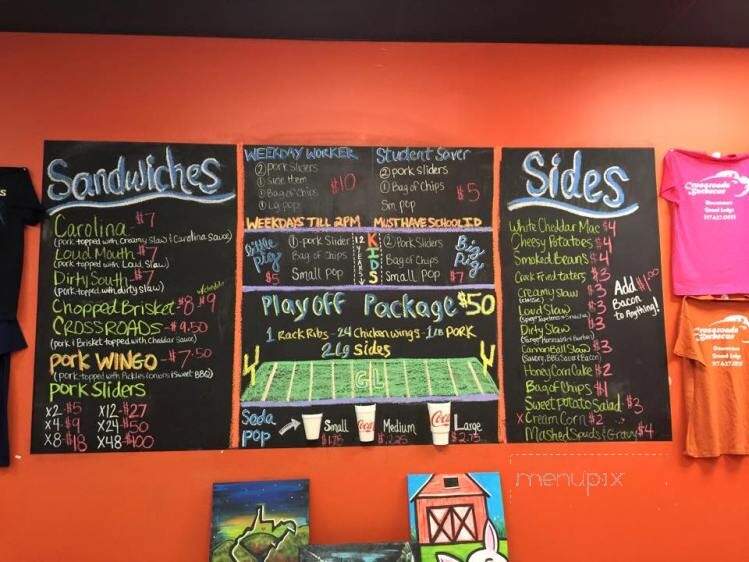 Sandwiches
Carolina - $7
(pork topped with Creamy Slaw & Carolina Sauce)
Loud Mouth - $7
(pork topped with Loud Slaw)
Dirty South - $7
(pork topped with dirty slaw)
w/cheddar
Chopped Brisket - $8 $9
CROSSROADS - $9.50
(pork & Brisket topped with Cheddar Sauce)
pork WINGO - $7.50
(pork topped with Pickles, onions & Sweet BBQ)
pork Sliders
x2 - $5 x12 - $27
x4 - $9 x24 - $50
x8 - $18 x48 - $100
WEEKDAY WORKER
② pork Sliders
① Side Item
① Bag of Chips
① Lg pop
$10
WEEKDAYS TILL 2PM
Student Saver
② pork sliders
① Bag of Chips
Sm pop
$5
MUST HAVE SCHOOL I.D
little pig
$5
① pork Slider
Bag of Chips
Small pop
KIDS
12 YEARS
② Pork Sliders
Bag of Chips
Small pop
Big pig
$7
Play off Package $50
1 Rack Ribs - 24 Chicken wings - 1 LB PORK
2 Lg Sides
GL
Soda pop
Small $1.75
Medium $2.25
Large $2.75
Coca
Sides
White Cheddar Mac $4
Cheesy Potatoes $4
Smoked Beans $4
Deep Fried taters $3
Creamy Slaw $3
(classic)
Loud Slaw $3
Dirty Slaw $3
CannonBall Slaw $3
Honey Corn Cake $2
Bag of Chips $1
Sweet potato Salad $3
x Cream Corn $2
Mashed Spuds & Gravy $4
Add $1.00
Bacon
to Anything!
Crossroads
Barbecue
Downtown
Grand Ledge
Crossroads
Barbecue
Downtown
Grand Ledge
menupix